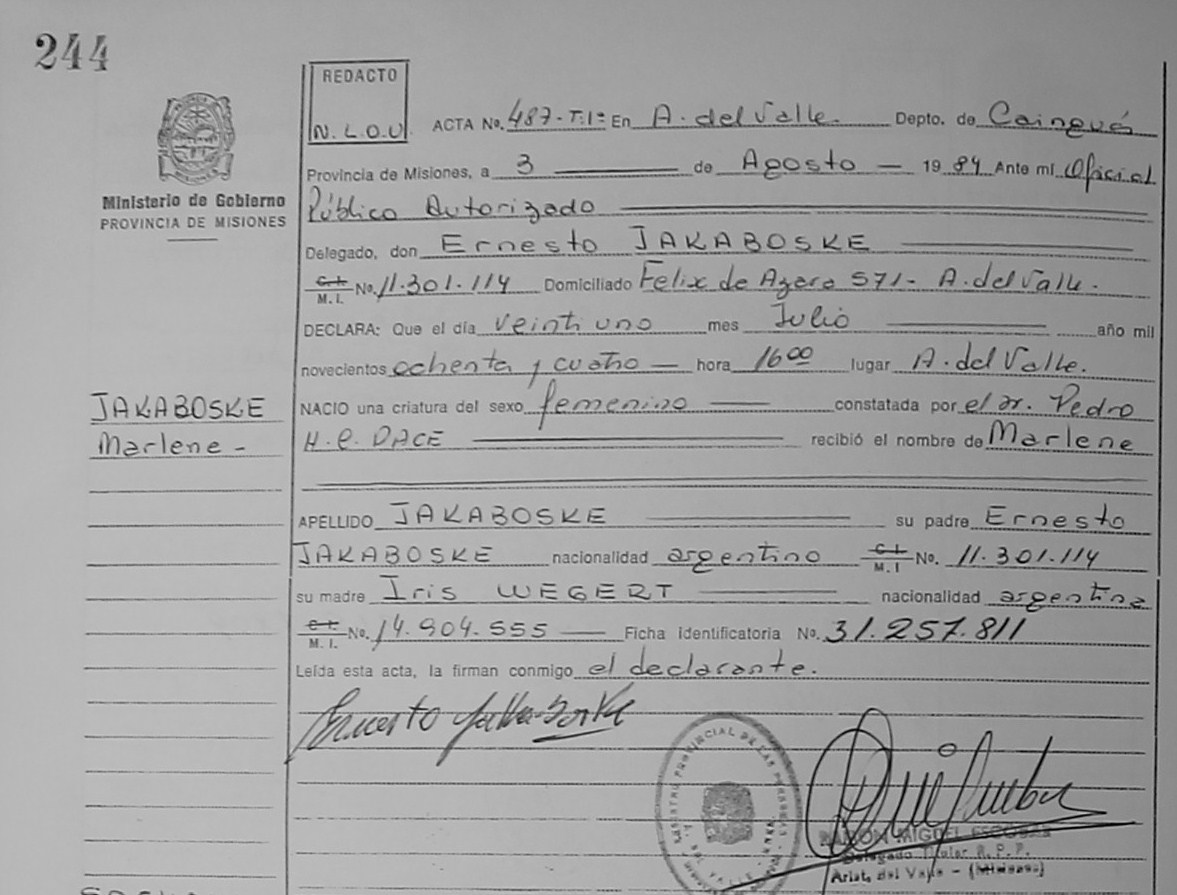 244
REDACTO
N.L.O.U
Ministerio de Gobierno
PROVINCIA DE MISIONES
ACTA No. 487-T.1º En A. del Valle. Depto. de Cainguás
Provincia de Misiones, a 3 de Agosto — 19 84 Ante mí Oficial
Público Autorizado
Delegado, don Ernesto JAKABOSKE
C.I. M.I. No. 11.301.114 Domiciliado Felix de Azara 571- A. del Valle.
DECLARA: Que el día veintiuno mes Julio año mil
novecientos ochenta y cuatro — hora 16 00 lugar A. del Valle.
JAKABOSKE
Marlene -
NACIO una criatura del sexo femenino — constatada por el Dr. Pedro
H.C. DACE recibió el nombre de Marlene
APELLIDO JAKABOSKE su padre Ernesto
JAKABOSKE nacionalidad argentino C.I. M.I No. 11.301.114
su madre Iris WEGERT nacionalidad argentina
C.I. M.I. No. 14.904.555 — Ficha Identificatoria No. 31.257.811
Leída esta acta, la firman conmigo el declarante.
Ernesto Jakaboske
RAMON MIGUEL ESCOBAR
Delegado Titular R.P.P.
Arist. del Valle - (Misiones)